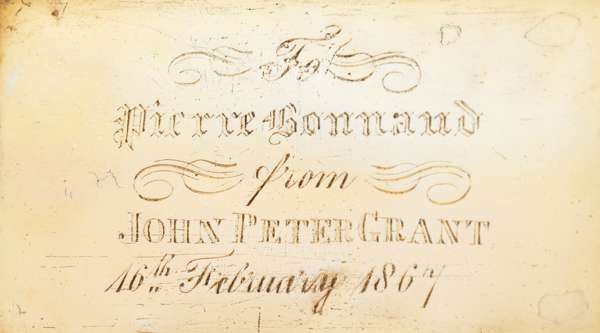 To
Pierre Bonnaud
from
JOHN PETER GRANT
16th February 1867